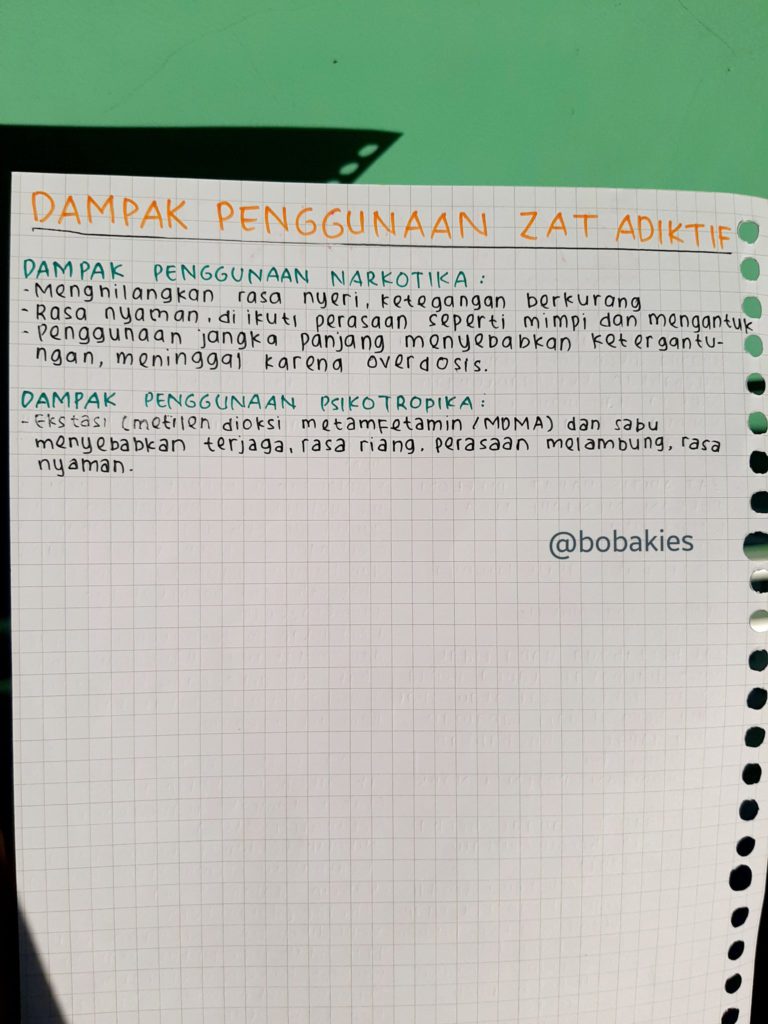 DAMPAK PENGGUNAAN ZAT ADIKTIF
DAMPAK PENGGUNAAN NARKOTIKA :
- Menghilangkan rasa nyeri, ketegangan berkurang
- Rasa nyaman, di ikuti perasaan seperti mimpi dan mengantuk
- Penggunaan jangka panjang menyebabkan ketergantu-
ngan, meninggal karena overdosis.
DAMPAK PENGGUNAAN PSIKOTROPIKA :
- Ekstasi (metilen dioksi metamfetamin / MDMA) dan sabu
menyebabkan terjaga, rasa riang, perasaan melambung, rasa
nyaman.
@bobakies